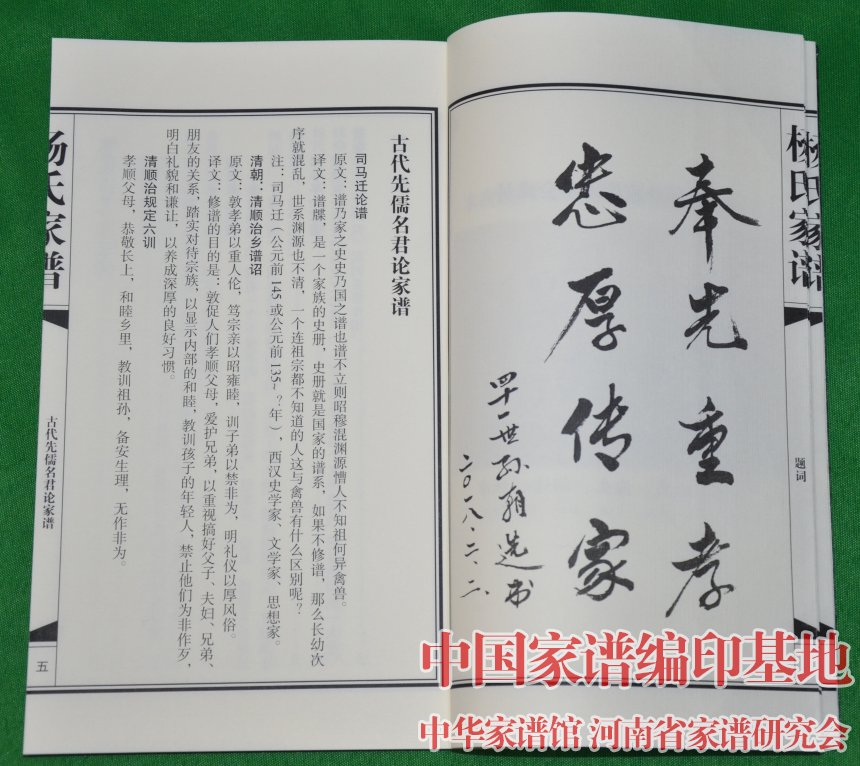 奉先重孝
忠厚传家
四十一世孙
选书
二〇一八.二.二.
杨氏家谱
题词
古代先儒名君论家谱
司马迁论谱
原文：谱乃家之史史乃国之谱也谱不立则昭穆混渊源懵人不知祖何异禽兽。
译文：谱牒，是一个家族的史册，史册就是国家的谱系，如果不修谱，那么长幼次
序就混乱，世系渊源也不清，一个连祖宗都不知道的人这与禽兽有什么区别呢？
注：司马迁（公元前145或公元前135~？年），西汉史学家、文学家、思想家。
清朝：清顺治乡谱诏
原文：敦孝弟以重人伦，笃宗亲以昭雍睦，训子弟以禁非为，明礼仪以厚风俗。
译文：修谱的目的是：敦促人们孝顺父母，爱护兄弟，以重视搞好父子、夫妇、兄弟、
朋友的关系，踏实对待宗族，以显示内部的和睦，教训孩子的年轻人，禁止他们为非作歹，
明白礼貌和谦让，以养成深厚的良好习惯。
清顺治规定六训
孝顺父母，恭敬长上，和睦乡里，教训祖孙，备安生理，无作非为。
杨氏家谱
古代先儒名君论家谱
五
中国家谱编印基地
中华家谱馆 河南省家谱研究会